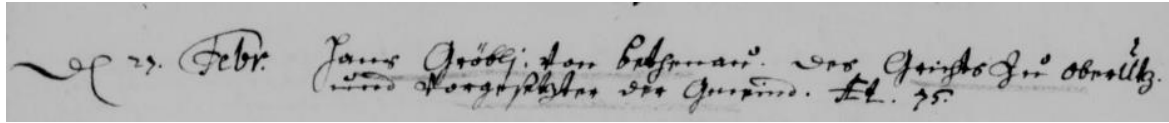 D. 27. Febr. Hans Gröblj. von bethenaú. des Grichts Zú oberÚtz.
und Vorgesetzter der Gmeind. Æt. 75.